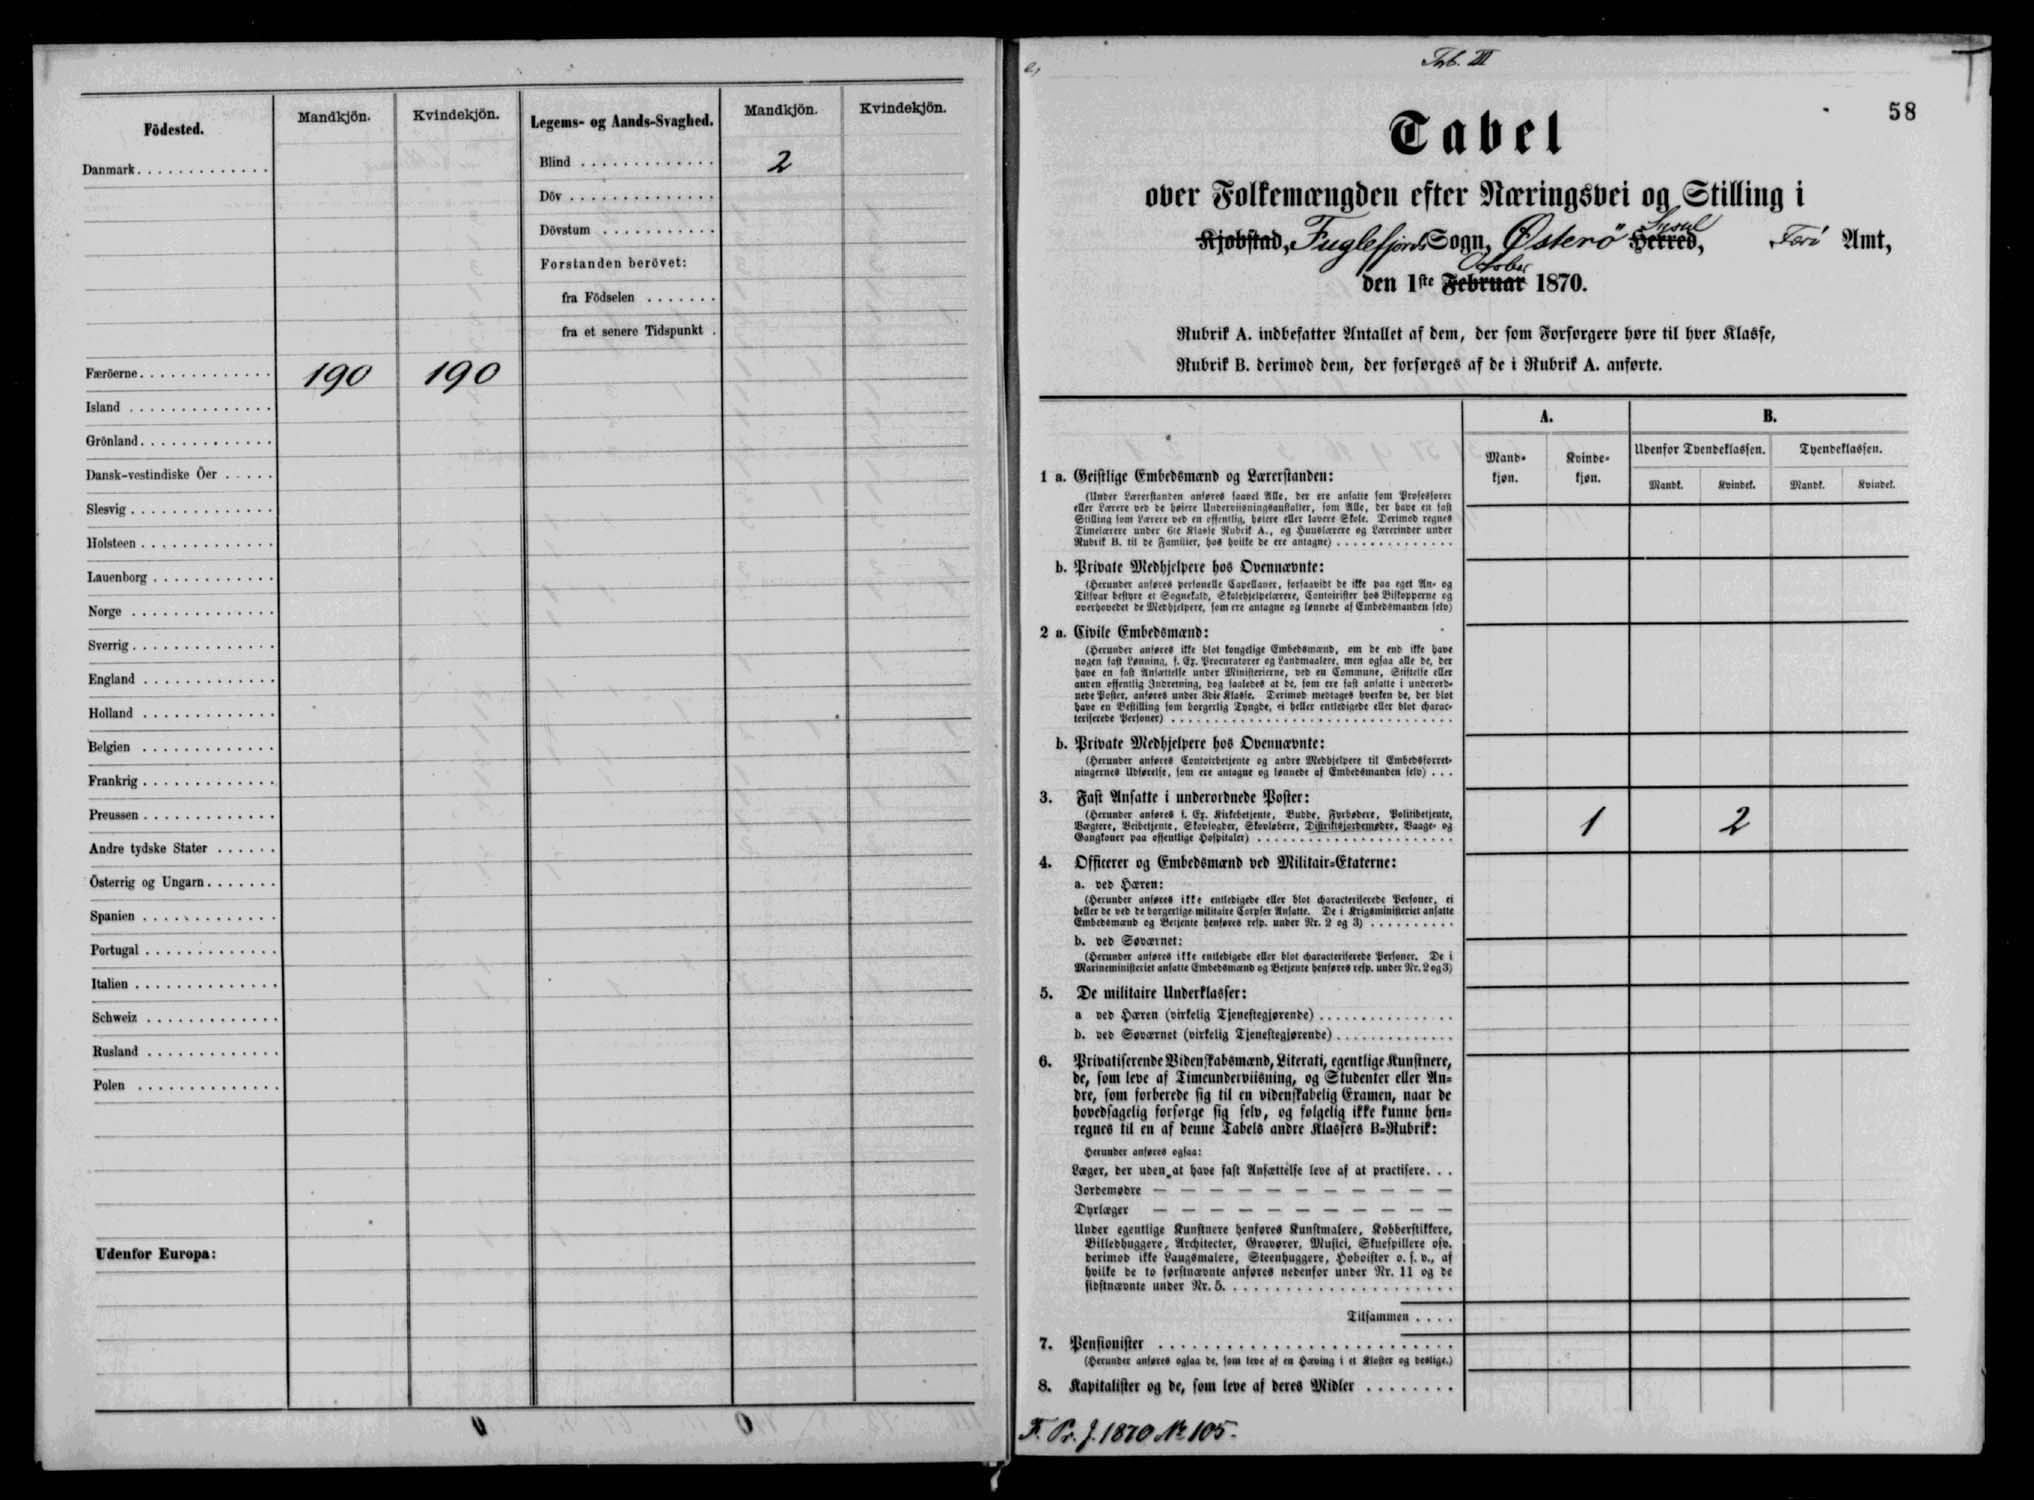 Födested. Mandkjön. Kvindekjön. Legems- og Aands-Svaghed. Mandkjön. Kvindekjön.
Danmark . . . . . . . . . . . . . Blind . . . . . . . . . . . . . 2
Döv . . . . . . . . . . . . . .
Dövstum . . . . . . . . . . .
Forstanden berövet:
fra Födselen . . . . . . .
fra et senere Tidspunkt .
Færöerne . . . . . . . . . . . . . 190 190
Island . . . . . . . . . . . . . .
Grönland . . . . . . . . . . . . .
Dansk-vestindiske Öer . . . . .
Slesvig . . . . . . . . . . . . . .
Holsteen . . . . . . . . . . . . .
Lauenborg . . . . . . . . . . . .
Norge . . . . . . . . . . . . . .
Sverrig . . . . . . . . . . . . . .
England . . . . . . . . . . . . .
Holland . . . . . . . . . . . . .
Belgien . . . . . . . . . . . . .
Frankrig . . . . . . . . . . . . .
Preussen . . . . . . . . . . . . .
Andre tydske Stater . . . . . .
Österrig og Ungarn . . . . . . .
Spanien . . . . . . . . . . . . .
Portugal . . . . . . . . . . . . .
Italien . . . . . . . . . . . . . .
Schweiz . . . . . . . . . . . . .
Rusland . . . . . . . . . . . . .
Polen . . . . . . . . . . . . . .
Udenfor Europa:
Tab. III
58
Tabel
over Folkemængden efter Næringsvei og Stilling i
Syssel
Kjøbstad, Fuglefjords Sogn, Østerö Herred, Færö Amt,
October
den 1ste Februar 1870.
Rubrik A. indbefatter Antallet af dem, der som Forsørgere høre til hver Klasse,
Rubrik B. derimod dem, der forsørges af de i Rubrik A. anførte.
A. B.
Mandkjøn. Kvindekjøn. Udenfor Tyendeklassen. Tyendeklassen.
Mandk. Kvindek. Mandk. Kvindek.
1 a. Geistlige Embedsmænd og Lærerstanden:
(Under Lærerstanden anføres saavel Alle, der ere ansatte som Professorer
eller Lærere ved de høiere Underviisningsanstalter, som Alle, der have en fast
Stilling som Lærere ved en offentlig, høiere eller lavere Skole. Derimod regnes
Timelærere under 6te Klasse Rubrik A., og Huuslærere og Lærerinder under
Rubrik B. til de Familier, hos hvilke de ere antagne) . . . . . . . . . . . . . .
b. Private Medhjelpere hos Ovennævnte:
(Herunder anføres personelle Capellaner, forsaavidt de ikke paa eget An- og
Tilsvar bestyre et Sognekald, Skolehjelpelærere, Contoirister hos Biskopperne og
overhovedet de Medhjelpere, som ere antagne og lønnede af Embedsmanden selv)
2 a. Civile Embedsmænd:
(Herunder anføres ikke blot kongelige Embedsmænd, om de end ikke have
nogen fast Lønning, f. Ex. Procuratorer og Landmaalere, men ogsaa alle de, der
have en fast Ansættelse under Ministerierne, ved en Commune, Stiftelse eller
anden offentlig Indretning, dog saaledes at de, som ere fast ansatte i underord-
nede Poster, anføres under 3die Klasse. Derimod medtages hverken de, der blot
have en Bestilling som borgerlig Tyngde, ei heller entledigede eller blot charac-
teriserede Personer) . . . . . . . . . . . . . . . . . . . . . . . . . . . .
b. Private Medhjelpere hos Ovennævnte:
(Herunder anføres Contoirbetjente og andre Medhjelpere til Embedsforret-
ningernes Udførelse, som ere antagne og lønnede af Embedsmanden selv) . . .
3. Fast Ansatte i underordnede Poster:
(Herunder anføres f. Ex. Kirkebetjente, Budde, Fyrbødere, Politibetjente,
Vægtere, Veibetjente, Skovfogder, Skovløbere, Distriktsjordemødre, Vaage- og
Gangkoner paa offentlige Hospitaler) . . . . . . . . . . . . . . . . . . . . 1 2
4. Officerer og Embedsmænd ved Militair-Etaterne:
a. ved Hæren:
(Herunder anføres ikke entledigede eller blot characteriserede Personer, ei
heller de ved de borgerlige militaire Corpser Ansatte. De i Krigsministeriet ansatte
Embedsmænd og Betjente henføres resp. under Nr. 2 og 3) . . . . . . . . . .
b. ved Søværnet:
(Herunder anføres ikke entledigede eller blot characteriserede Personer. De i
Marineministeriet ansatte Embedsmænd og Betjente henføres resp. under Nr. 2 og 3)
5. De militaire Underklasser:
a ved Hæren (virkelig Tjenestegjørende) . . . . . . . . . . . . . .
b. ved Søværnet (virkelig Tjenestegjørende) . . . . . . . . . . . . .
6. Privatiserende Videnskabsmænd, Literati, egentlige Kunstnere,
de, som leve af Timeunderviisning, og Studenter eller An-
dre, som forberede sig til en videnskabelig Examen, naar de
hovedsagelig forsørge sig selv, og følgelig ikke kunne hen-
regnes til en af denne Tabels andre Klassers B-Rubrik:
Herunder anføres ogsaa:
Læger, der uden at have fast Ansættelse leve af at practisere. . .
Jordemødre — — — — — — — — — — —
Dyrlæger — — — — — — — — — — —
Under egentlige Kunstnere henføres Kunstmalere, Kobberstikkere,
Billedhuggere, Architecter, Gravører, Musici, Skuespillere osv.
derimod ikke Laugsmalere, Steenhuggere, Hoboister o. s. v., af
hvilke de to førstnævnte anføres nedenfor under Nr. 11 og de
sidstnævnte under Nr. 5. . . . . . . . . . . . . . . . . . . . .
Tilsammen . . . .
7. Pensionister . . . . . . . . . . . . . . . . . . . . . . . . .
(Herunder anføres ogsaa de, som leve af en Hæving i et Kloster og deslige.)
8. Kapitalister og de, som leve af deres Midler . . . . . . . .
F. Pr. J. 1870 No 105.